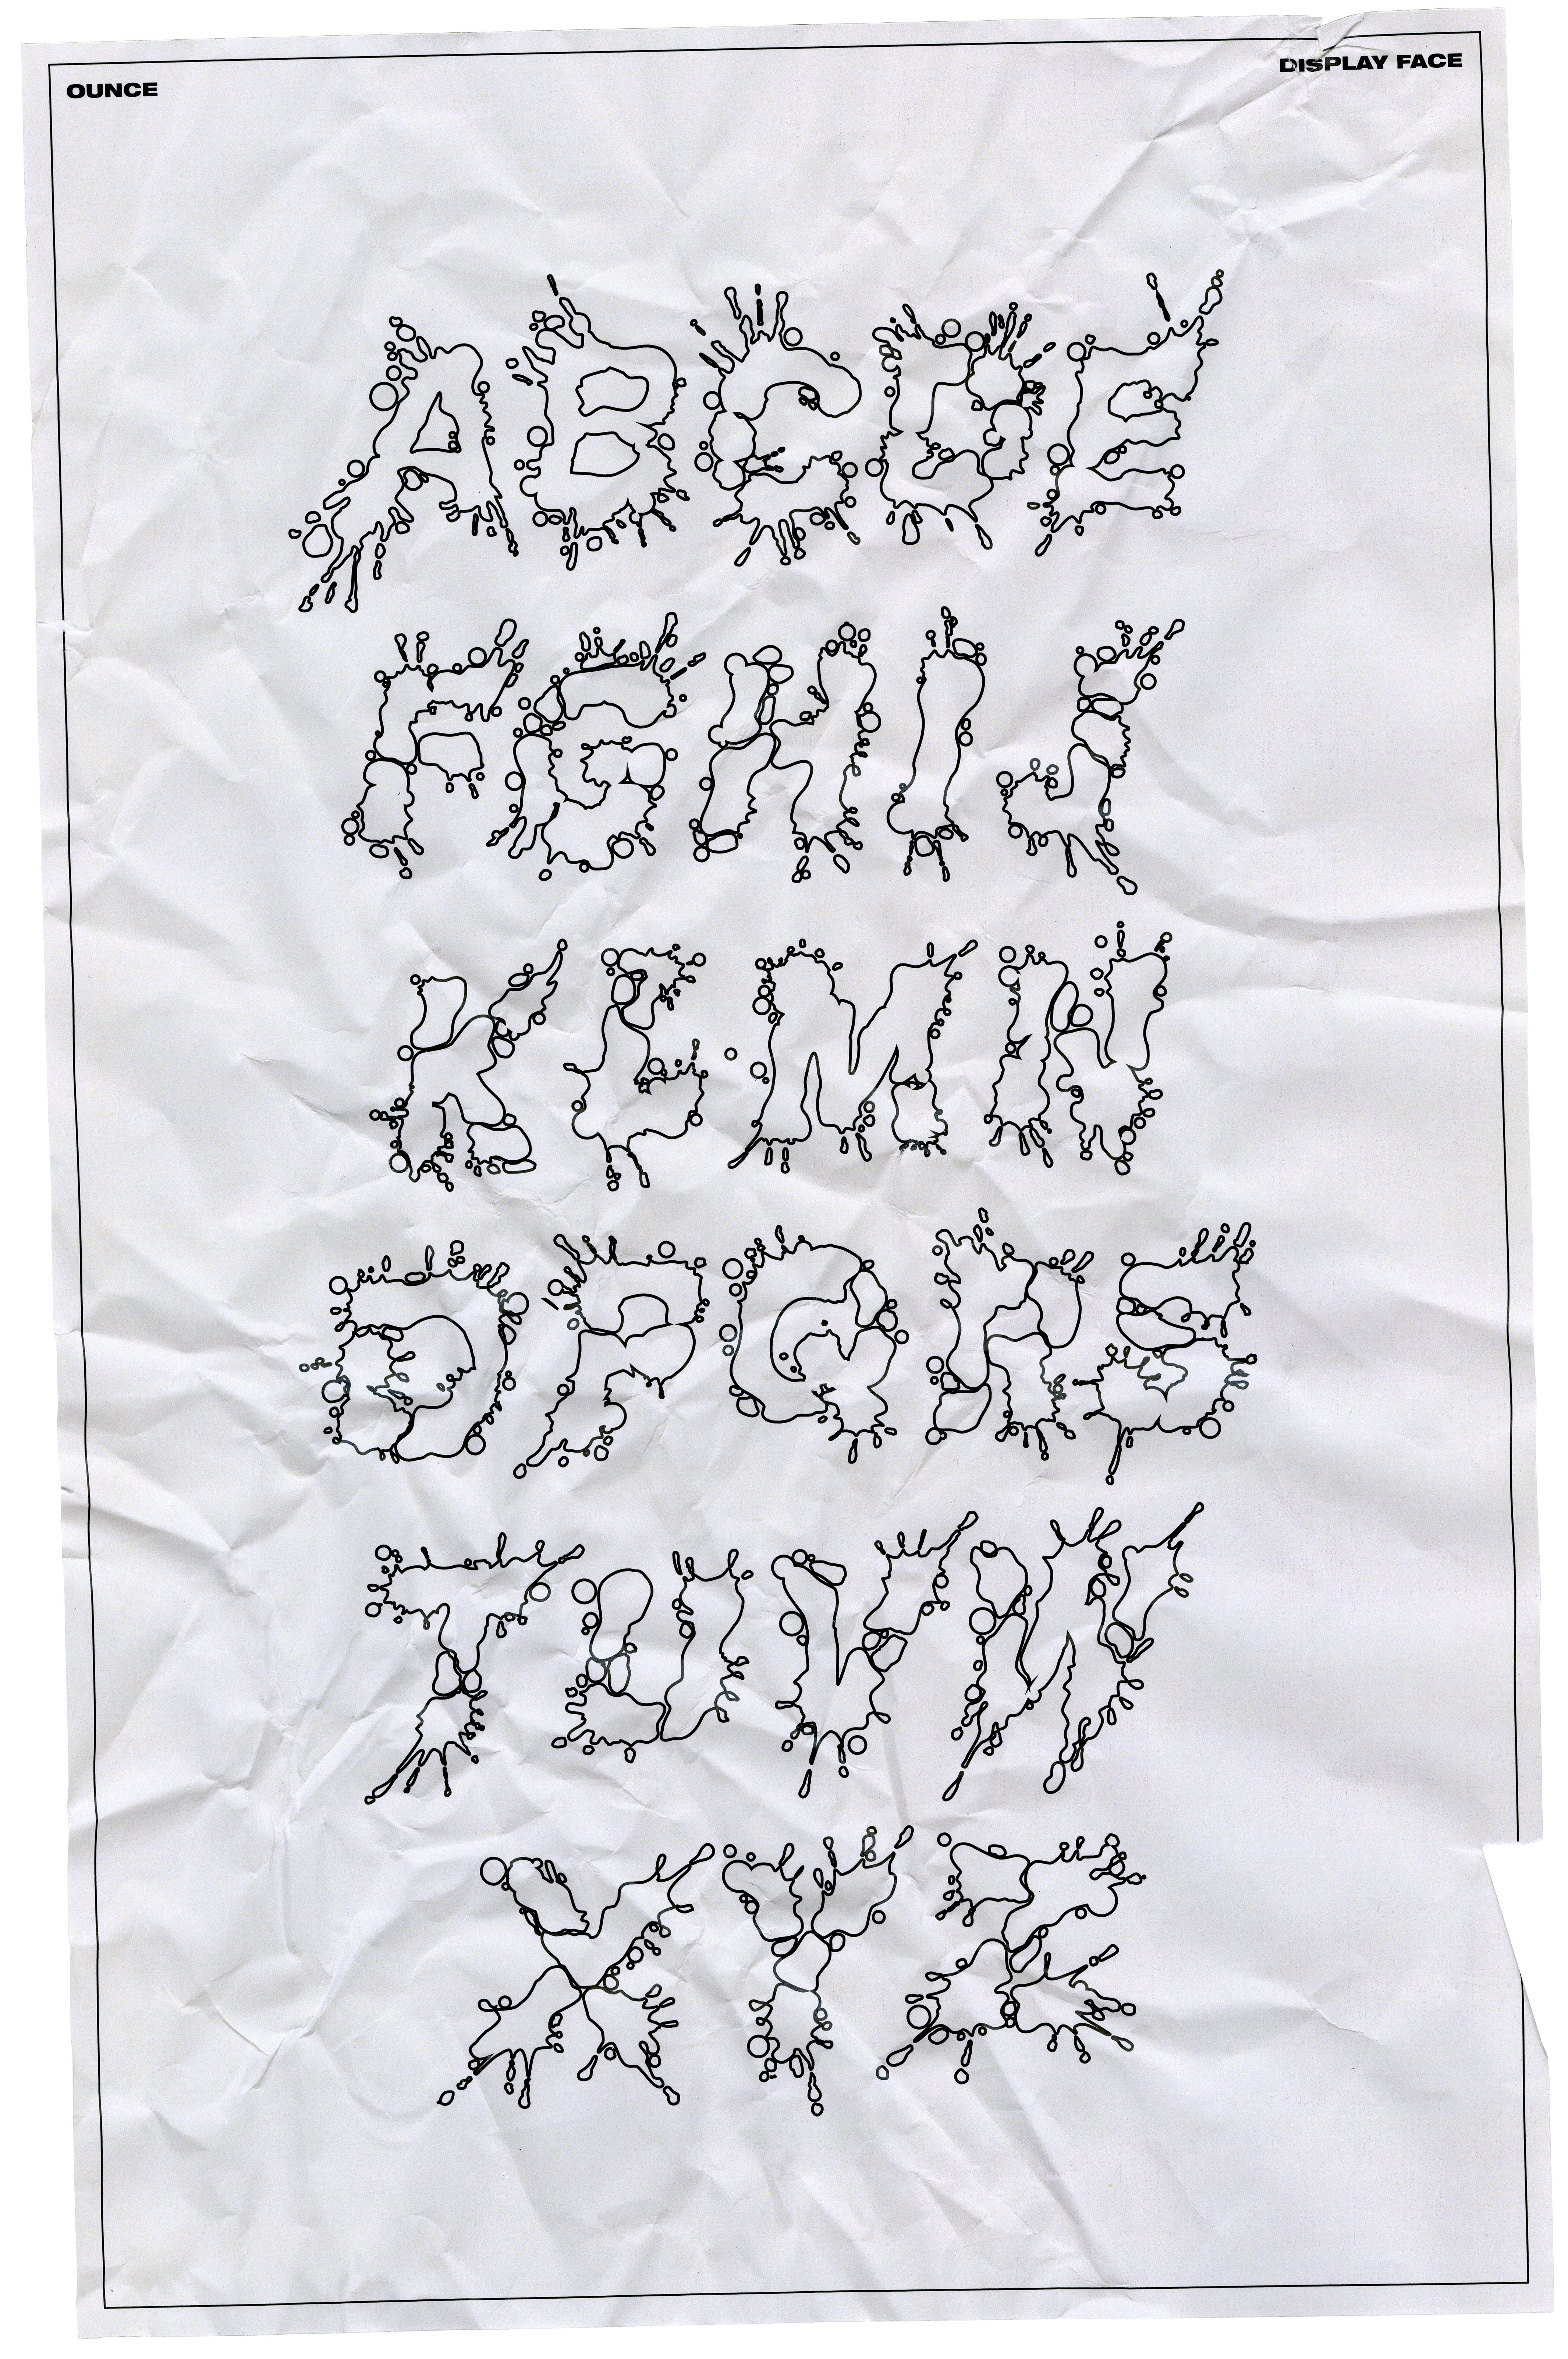 OUNCE
DISPLAY FACE
A B C D E
F G H I J
K L M N
O P Q R S
T U V W
X Y Z